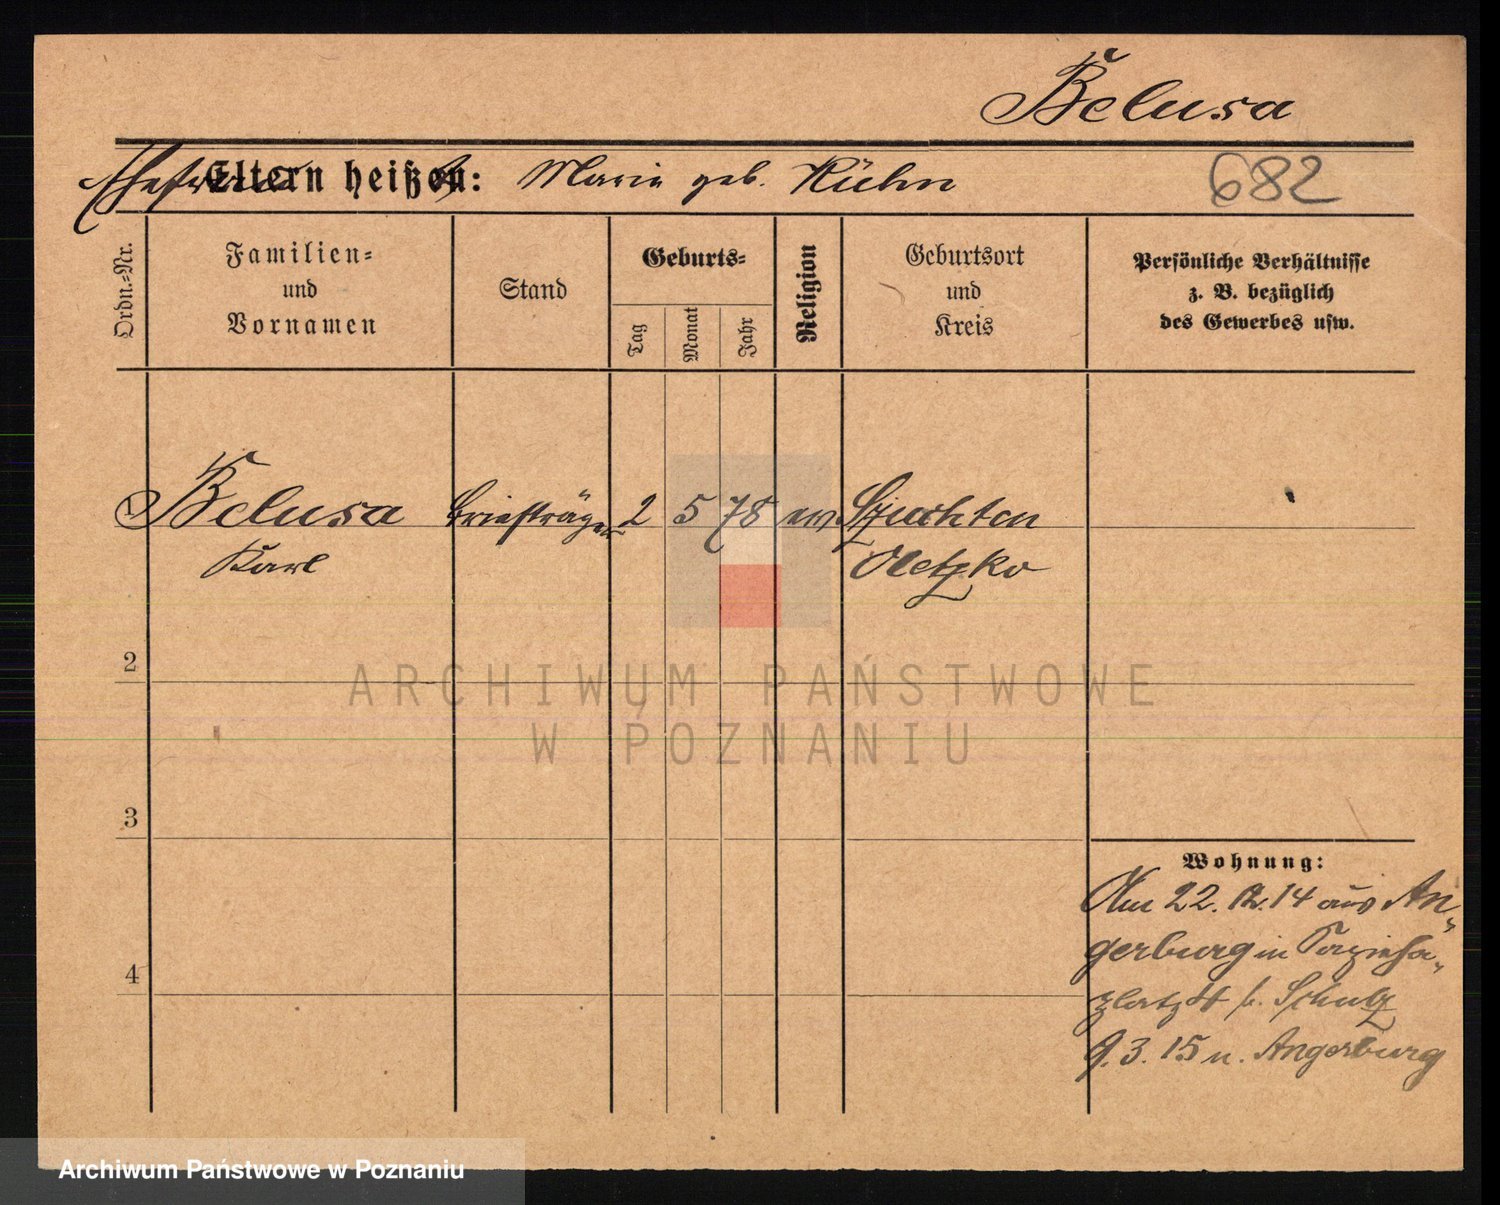 Belusa
Ehefrau Eltern heißen: Maria geb. Kühn
682
Ordn.=Nr.
Familien=
und
Vornamen
Stand
Geburts=
Tag
Monat
Jahr
Religion
Geburtsort
und
Kreis
Persönliche Verhältnisse
z. B. bezüglich
des Gewerbes usw.
Belusa Briefträger 2 5 78 ev. Szuchten
Karl Oletzko
2
ARCHIWUM PAŃSTWOWE
W POZNANIU
3
4
Wohnung:
Am 22. 12. 14 aus An-
gerburg in
platz 4 b. Schulz
9. 3. 15 n. Angerburg
Archiwum Państwowe w Poznaniu